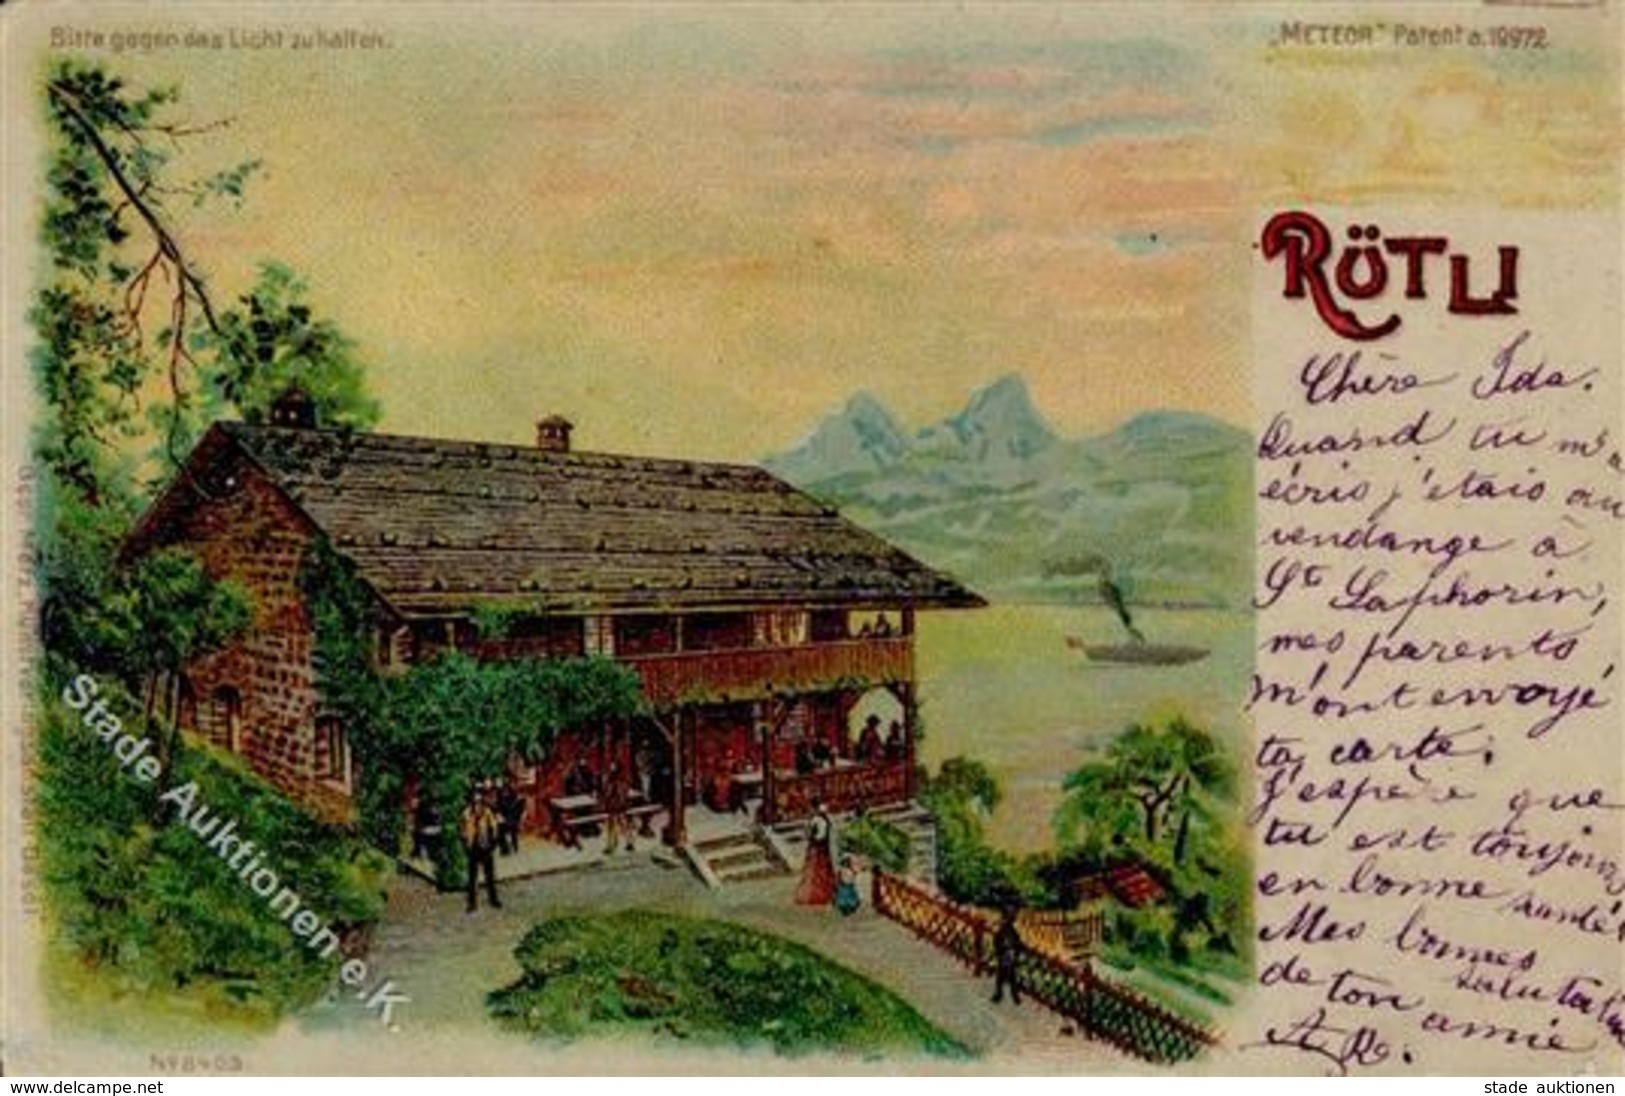 Bitte gegen das Licht zu halten.
„METEOR" Patent a. 10972
RÜTLI
Chère Ida.
Quand tu m'a
écris j'etais au
vendange à
St Saphorin,
mes parents,
m'ont envoyé
ta carte.
J'espère que
tu est toujours
en bonne santé!
Mes bonnes
salutations
de ton amie
A. R.
Stade Auktionen e.K.
No 8403
www.delcampe.net
stade auktionen